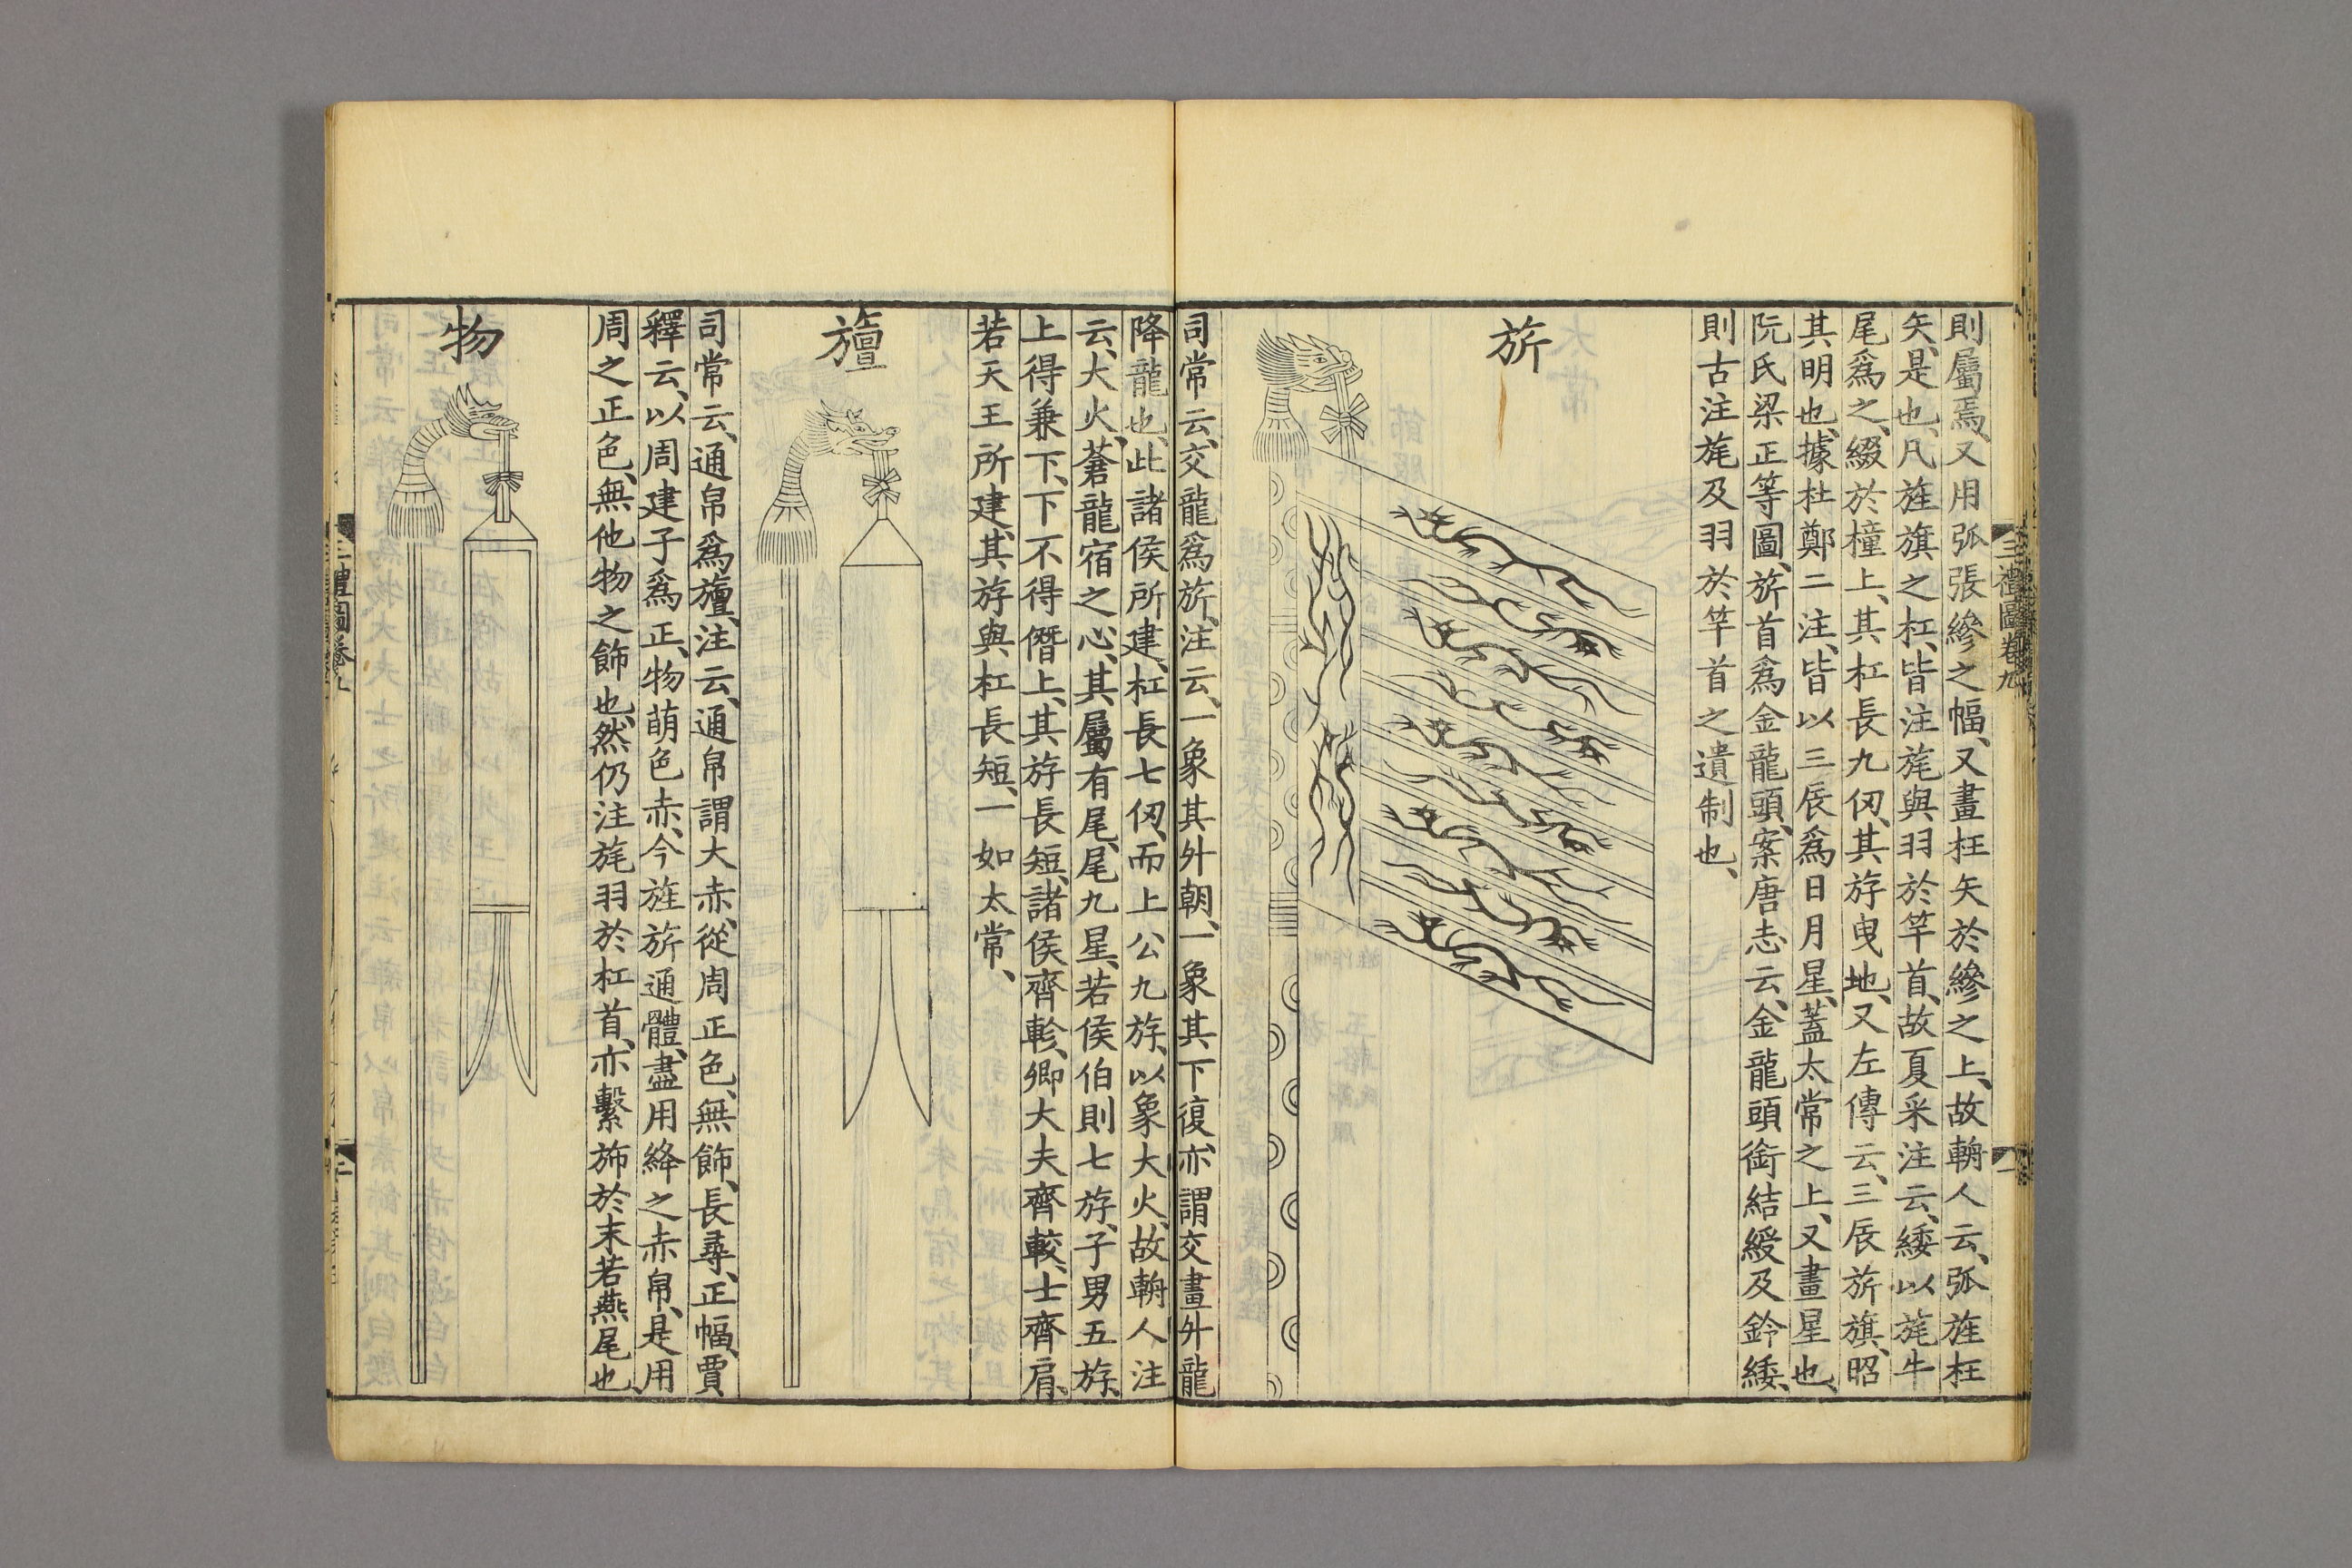 則屬焉又用弧張縿之幅、又畫枉矢於縿之上、故輈人云、弧旌枉
矢、是也、凡旌旗之杠、皆注旄與羽於竿首、故夏采注云、緌以旄牛
尾爲之、綴於橦上、其杠長九仞、其斿曳地、又左傳云、三辰旂旗、昭
其明也、據杜鄭二注、皆以三辰爲日月星、蓋太常之上、又畫星也、
阮氏梁正等圖、旂首爲金龍頭、案唐志云、金龍頭銜結綬及鈴緌、
則古注旄及羽於竿首之遺制也、
旂
司常云、交龍爲旂、注云、一象其升朝、一象其下復、亦謂交畫升龍
降龍也、此諸侯所建、杠長七仞、而上公九斿、以象大火、故輈人注
云、大火、蒼龍宿之心、其屬有尾、尾九星、若侯伯則七斿、子男五斿、
上得兼下、下不得僭上、其斿長短、諸侯齊軫、卿大夫齊較、士齊肩、
若天王所建、其斿與杠長短、一如太常、
旜
司常云、通帛爲旜、注云、通帛謂大赤、從周正色、無飾、長尋、正幅、賈
釋云、以周建子爲正、物萌色赤、今旌旂通體、盡用絳之赤帛、是用
周之正色、無他物之飾也、然仍注旄羽於杠首、亦繫斾於末若燕尾也、
物
三禮圖卷九
一
三禮圖卷九
二